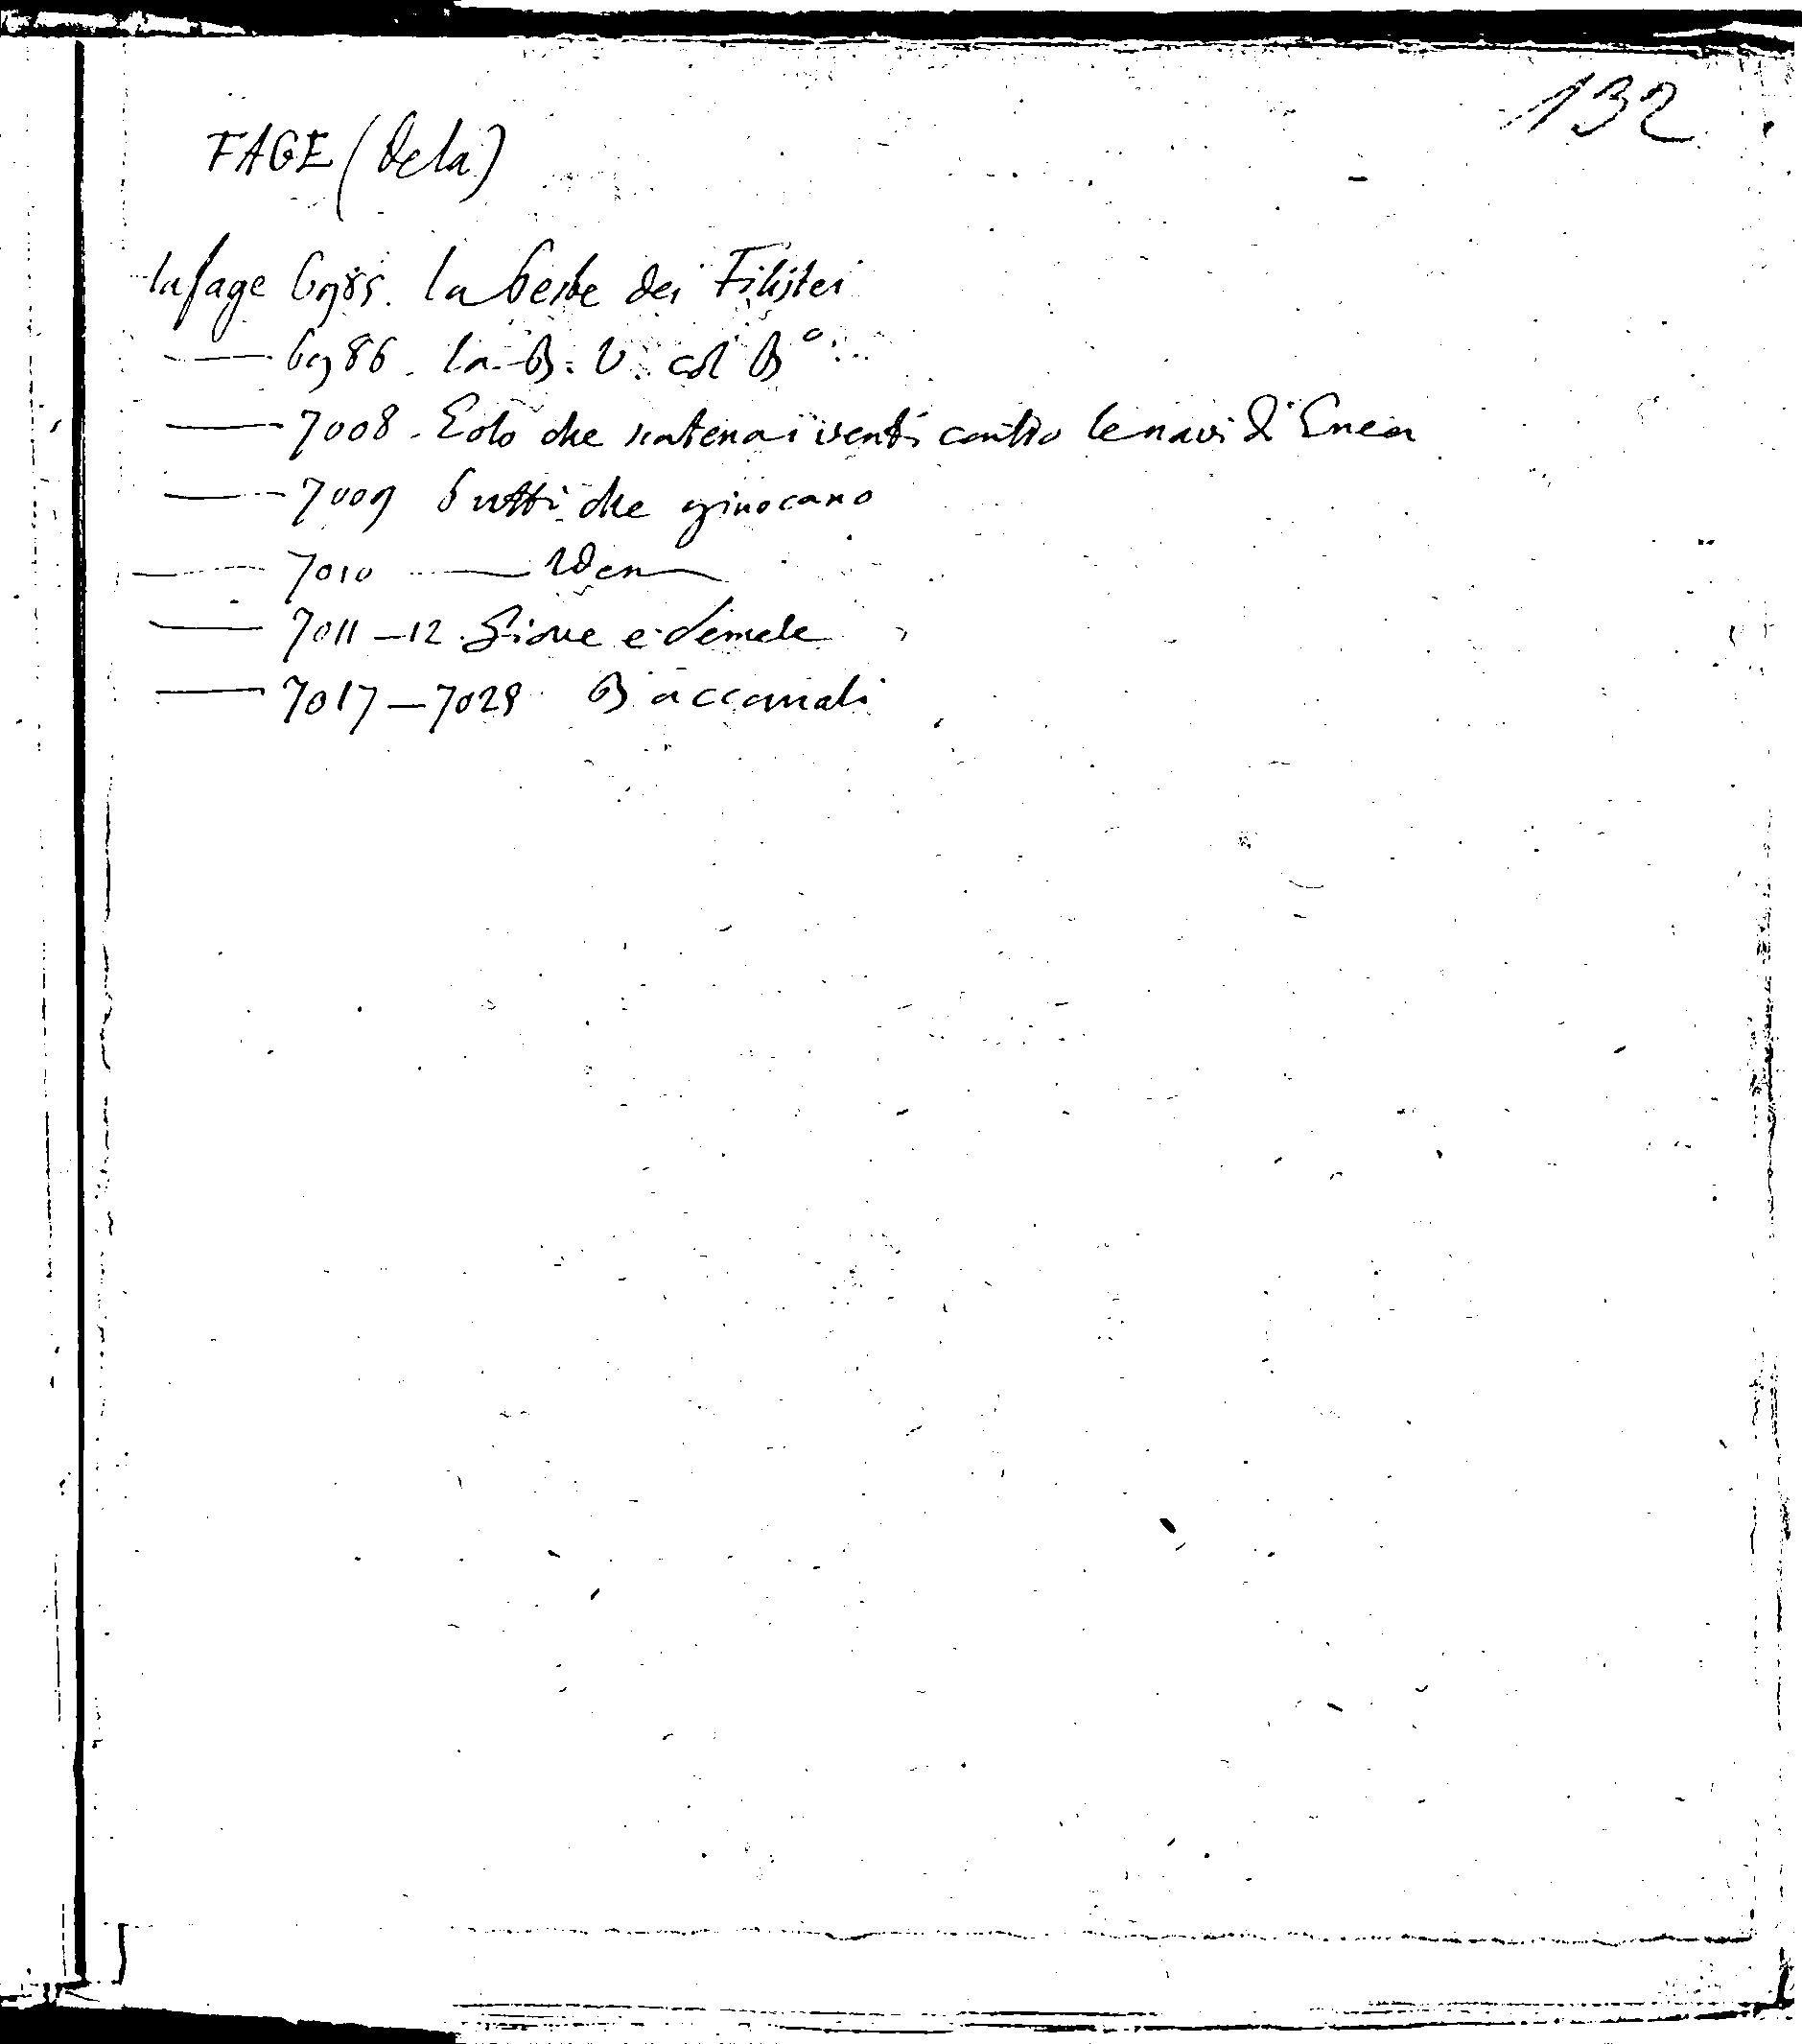 132
FAGE (de la)
Lafage 6985. La peste dei Filistei
— 6986. La B. V. col B°
— 7008. Eolo che scatena i venti contro le navi di Enea
— 7009 Putti che giuocano
— 7010 — Idem —
— 7011–12. Giove e Semele
— 7017–7029 Baccanali